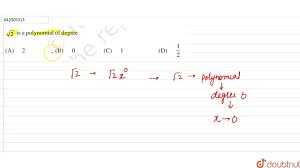 642505333
√2 is a polynomial of degree
(A) 2 (B) 0 (C) 1 (D) 1/2
√2 → √2 x⁰ → √2 → polynomial
↓
degree 0
↓
x → 0
doubtnut